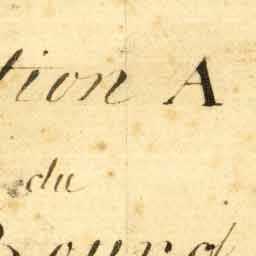 tion A
du
Bourg